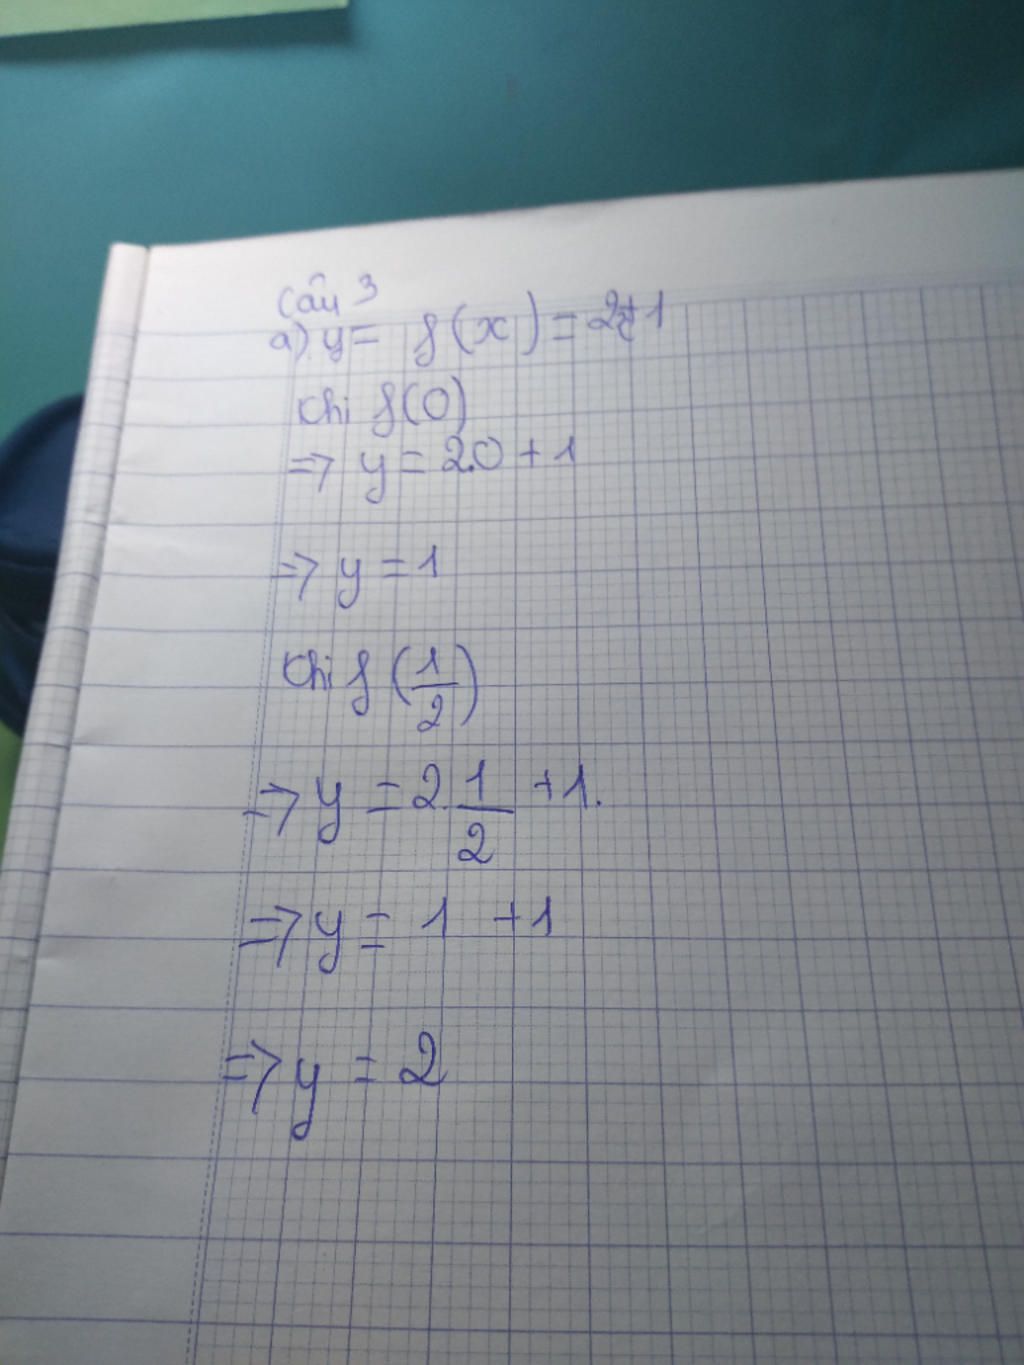 Câu 3
a) y = f(x) = 2x+1
Khi f(0)
=> y = 2.0 + 1
=> y = 1
Khi f(1/2)
=> y = 2.1/2 +1.
=> y = 1 +1
=> y = 2